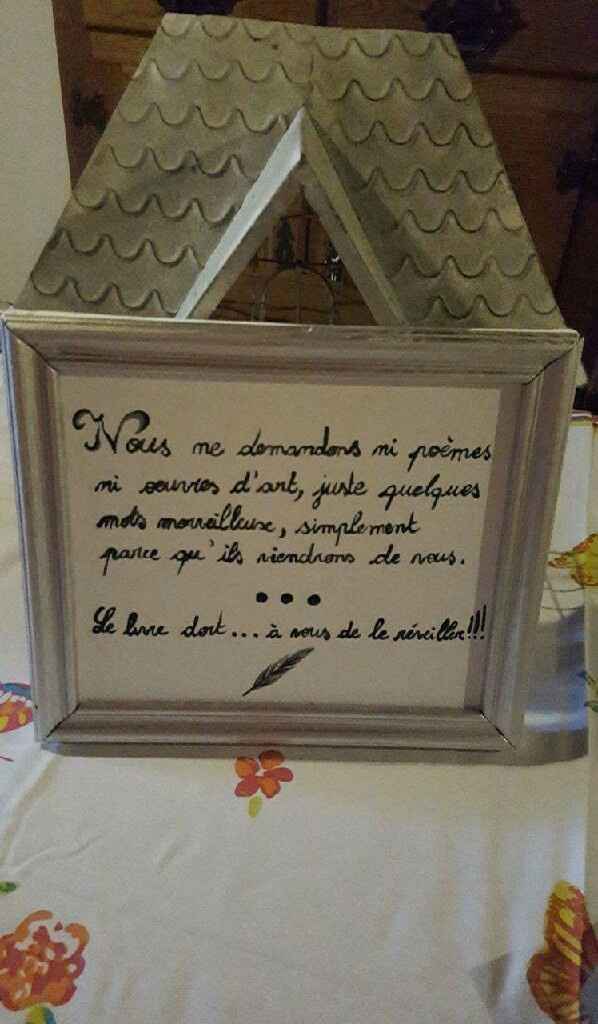 Nous ne demandons ni poèmes
ni oeuvres d'art, juste quelques
mots merveilleux, simplement
parce qu'ils viendrons de vous.
...
Le livre dort... à vous de le réveiller!!!